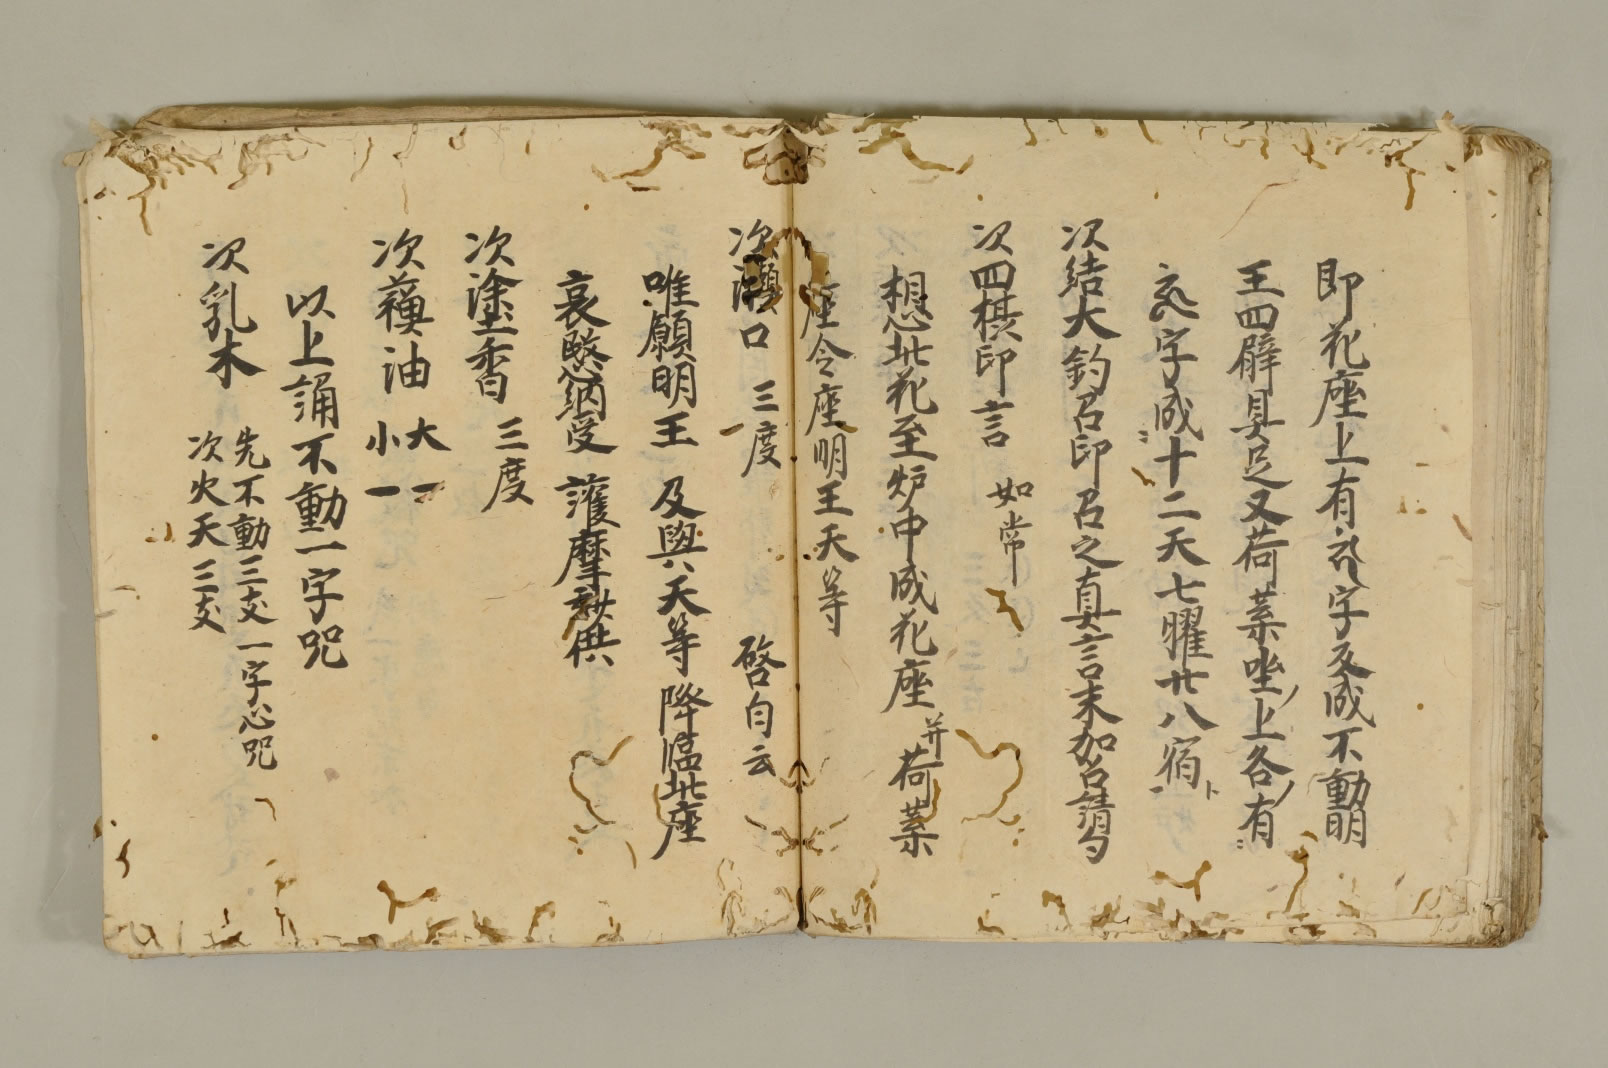 即花座上有字反成不動明
王四臂具足又荷葉座上各有
字成十二天七曜廿八宿
次結大鈎召印召之真言末加召請句
次四摂印言 如常
想此花至炉中成花座 并荷葉
座令座明王天等
次漱口 三度 啓白云
唯願明王 及與天等 降臨此座
哀愍納受 護摩妙供
次塗香 三度
次蘓油 大一 小一
以上誦不動一字咒
次乳木 先不動三支一字心咒
次火天三支